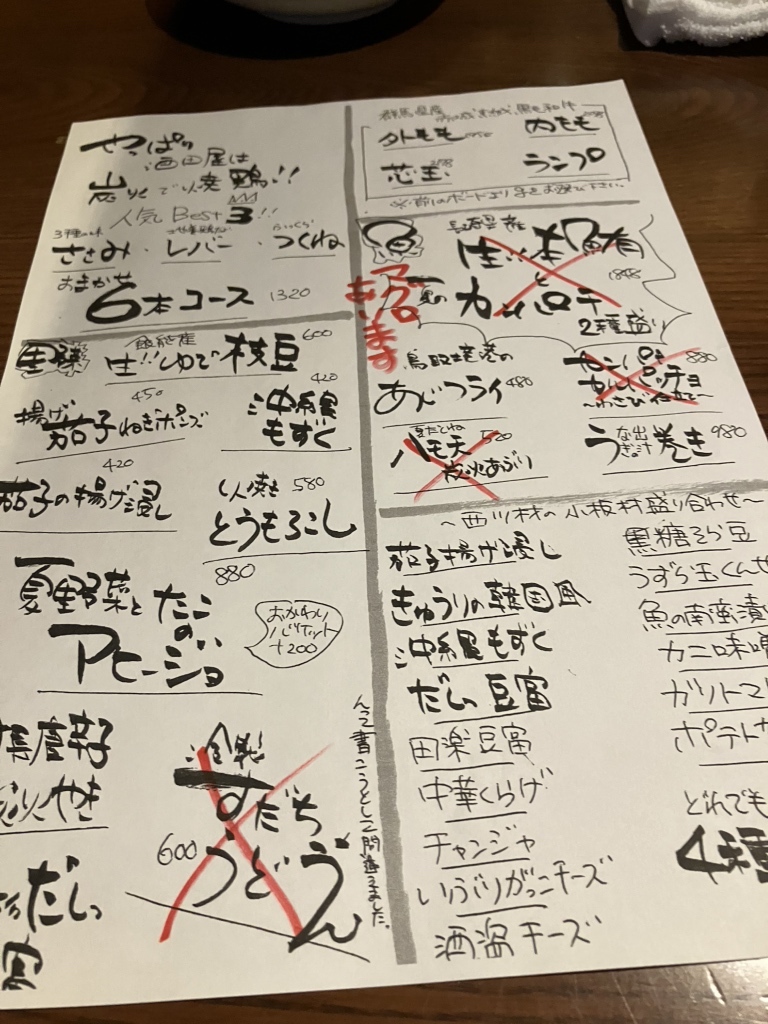 やっぱり
酒田屋は
炭火で焼鶏!!
人気Best3!!
3種の味
ささみ・レバー・つくね
おまかせ
6本コース 1320
生!!ゆで枝豆 600
揚げ茄子ねぎポンズ 450
沖縄産もずく 420
茄子の揚げ浸し 420
とうもろこし 580
夏野菜とたこの
アヒージョ 880
おかわり
バゲット
+200
すだち
うどん
600
んって書こうとして間違えました。
だしっ
群馬県産
外もも
内もも
芯玉
ランプ
※前のボードより
マグロ
あります
長崎県産
生本鮪
と
カンパチ
2種盛り
鳥取境港の
あじフライ 480
カンパチ
カルパッチョ
〜わさび仕立て〜
880
ハモ天
炭火あぶり
520
うなぎ出汁巻き 980
〜西川材の小板材盛り合わせ〜
茄子揚げ浸し
きゅうりの韓国風
沖縄産もずく
だし豆富
田楽豆富
中華くらげ
チャンジャ
いぶりがっこチーズ
酒盗チーズ
黒糖そら豆
うずら玉くんせ
魚の南蛮漬
カニ味噌
ガリトマ
ポテトサ
どれでも
4種